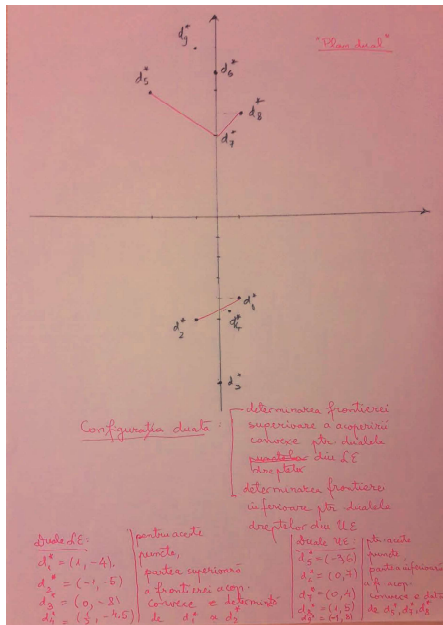 "Plan dual"
d₉*
d₆*
d₅*
d₈*
d₇*
d₁*
d₄*
d₂*
d₃*
Configurația duală :
determinarea frontierei
superioare a acoperirii
convexe ptr dualele
punctelor din LE
dreptelor
determinarea frontierei
inferioare ptr dualele
dreptelor din UE
Duale LE:
d₁* = (1, -4),
d₂* = (-1, -5)
d₃* = (0, -8)
pentru aceste
puncte,
partea superioară
a frontierei acop.
convexe e determinată
de d₁* și d₂*
Duale UE:
d₅* = (-3,6)
= (0,7)
= (0,4)
= (1,5)
ptr. aceste
puncte
partea inferioară
a fr. acop.
convexe e det.
de d₅*, d₇*, d₈*